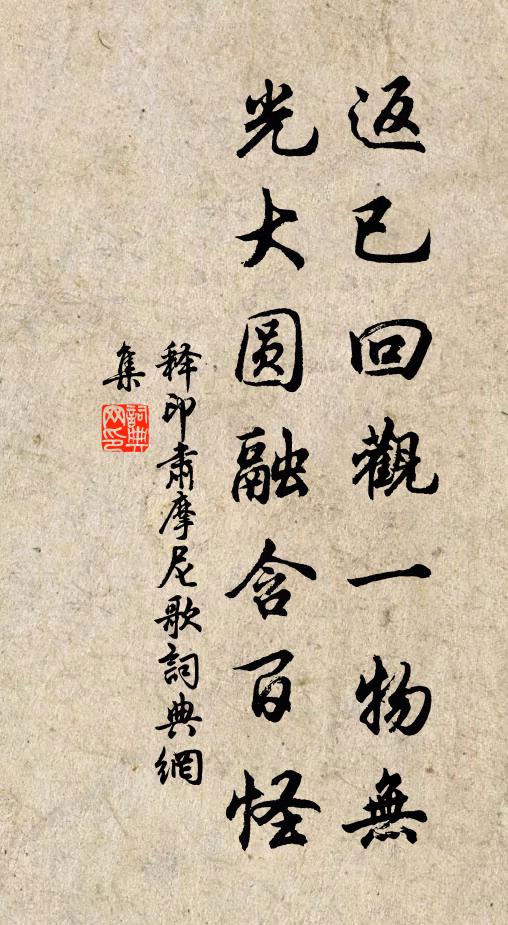 返已回觀一物無
光大圆融含百怪
释印肃摩尼歌詞典網
集
詞典网印